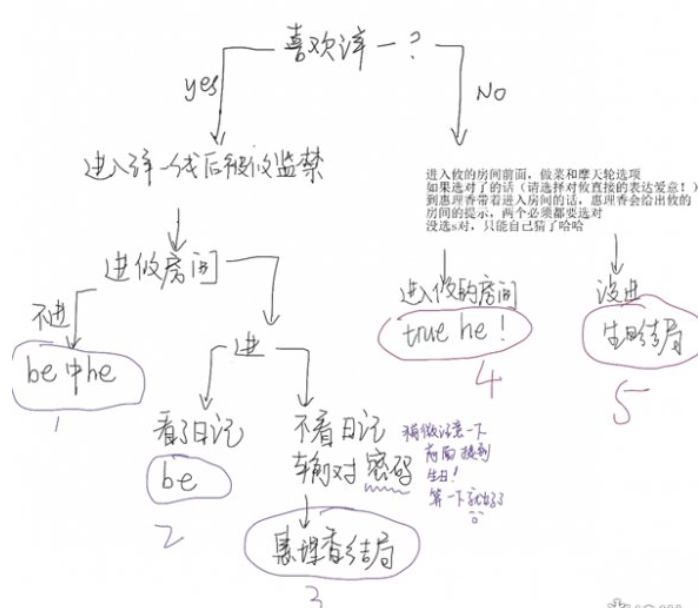 喜欢泽一？
yes
No
进入泽一线后被攸监禁
进入攸的房间前面，做菜和摩天轮选项
如果选对了的话（请选择对攸直接的表达爱意！）
到惠理香带着进入房间的话，惠理香会给出攸的
房间的提示，两个必须都要选对
没选s对，只能自己猜了哈哈
进攸房间
不进
进
be中he
1
进入攸的房间
true he！
4
没进
生日结局
5
看了日记
be
2
不看日记
输对密码
稍微注意一下
前面提到
生日！
算一下就出了
惠理香结局
3